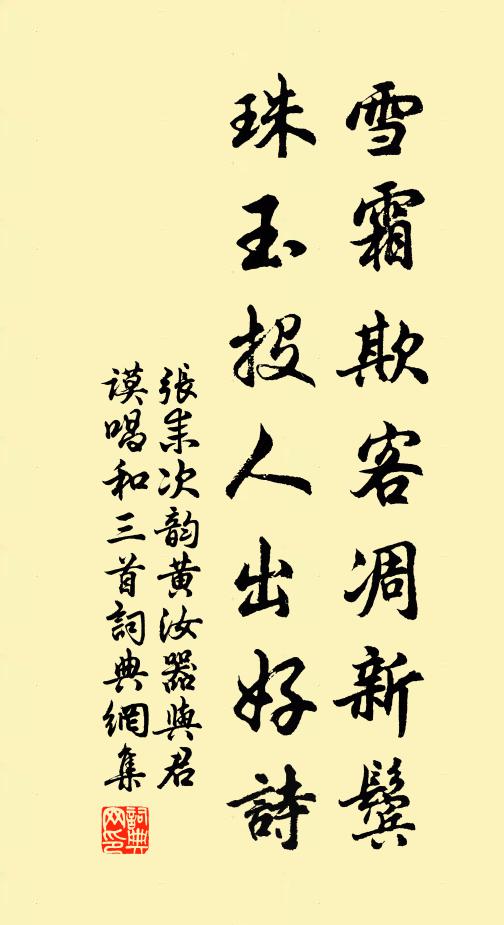 雪霜欺客凋新鬓
珠玉投人出好詩
張耒次韵黄汝器與君
謨唱和三首詞典網集
詞典網印